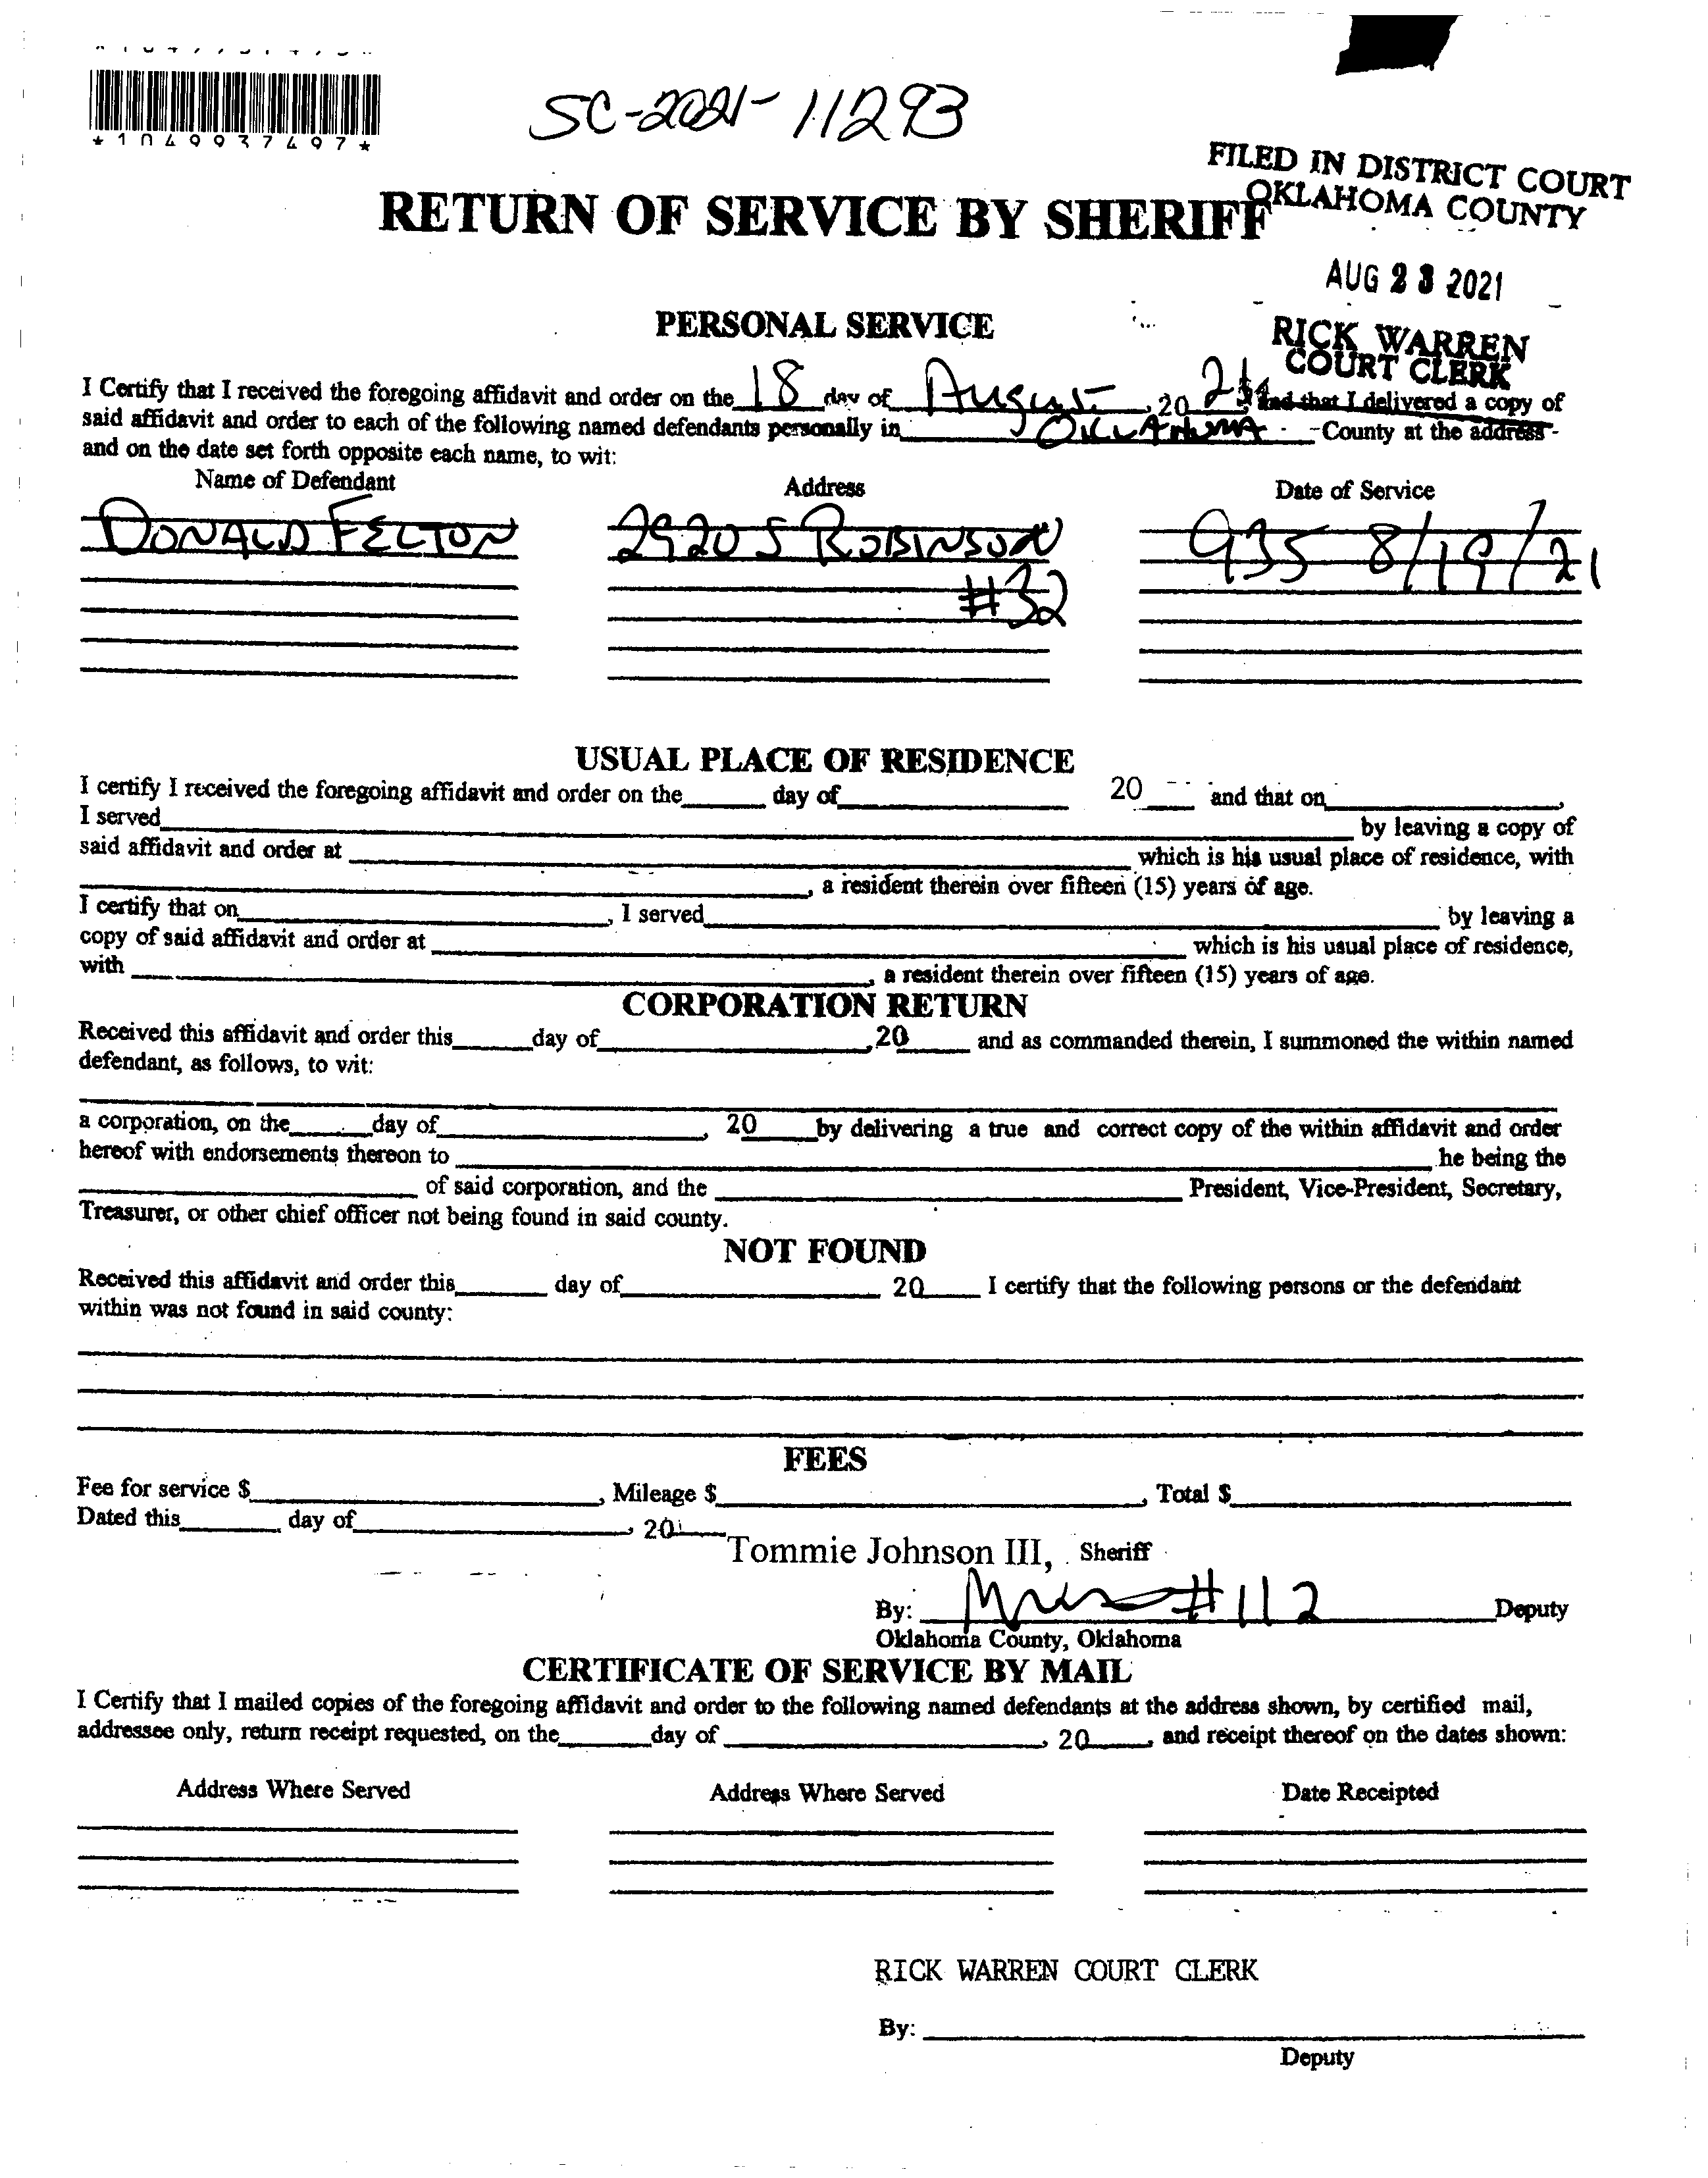 *1049937497*
SC-2021-11293
FILED IN DISTRICT COURT
OKLAHOMA COUNTY
RETURN OF SERVICE BY SHERIFF
AUG 23 2021
PERSONAL SERVICE
RICK WARREN
COURT CLERK
I Certify that I received the foregoing affidavit and order on the 18 day of August, 20 21 and that I delivered a copy of
said affidavit and order to each of the following named defendants personally in OKLAHOMA County at the address
and on the date set forth opposite each name, to wit:
Name of Defendant Address Date of Service
DONALD FELTON 2920 S ROBINSON 935 8/19/21
#32
USUAL PLACE OF RESIDENCE
I certify I received the foregoing affidavit and order on the ______ day of ______ 20 ___ and that on ______,
I served ______ by leaving a copy of
said affidavit and order at ______ which is his usual place of residence, with
______, a resident therein over fifteen (15) years of age.
I certify that on ______, I served ______ by leaving a
copy of said affidavit and order at ______ which is his usual place of residence,
with ______, a resident therein over fifteen (15) years of age.
CORPORATION RETURN
Received this affidavit and order this ______ day of ______, 20 ____ and as commanded therein, I summoned the within named
defendant, as follows, to wit:
a corporation, on the ______ day of ______, 20 ____ by delivering a true and correct copy of the within affidavit and order
hereof with endorsements thereon to ______ he being the
______ of said corporation, and the ______ President, Vice-President, Secretary,
Treasurer, or other chief officer not being found in said county.
NOT FOUND
Received this affidavit and order this ______ day of ______ 20 ____ I certify that the following persons or the defendant
within was not found in said county:
FEES
Fee for service $ ______, Mileage $ ______, Total $ ______
Dated this ______ day of ______, 20 ____
Tommie Johnson III, Sheriff
By: #112 Deputy
Oklahoma County, Oklahoma
CERTIFICATE OF SERVICE BY MAIL
I Certify that I mailed copies of the foregoing affidavit and order to the following named defendants at the address shown, by certified mail,
addressee only, return receipt requested, on the ______ day of ______, 20 ____, and receipt thereof on the dates shown:
Address Where Served Address Where Served Date Receipted
RICK WARREN COURT CLERK
By: ______
Deputy